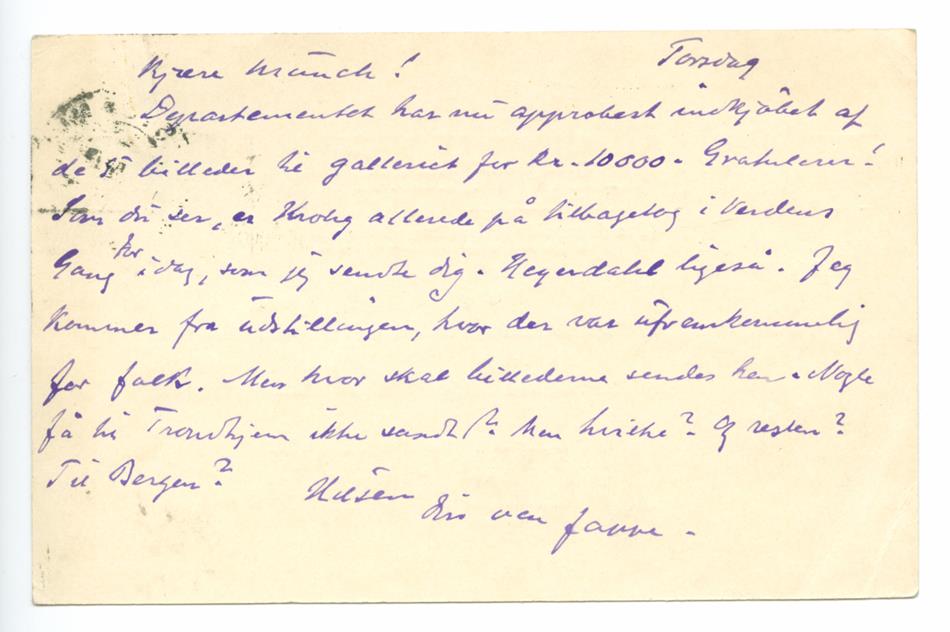 Torsdag
Kjære Munch!
Departementet har nu approbert indkjøbet af
de 5 billeder til galleriet for kr. 10000. Gratulerer!
Som du ser, er Krohg allerede på tilbagetog i Verdens
Gang for idag, som jeg sendte dig. Heyerdahl ligeså. Jeg
kommer fra udstillingen, hvor der var ufremkommelig
for folk. Men hvor skal billederne sendes hen. Nogle
få til Trondhjem ikke sandt? Men hvilke? Og resten?
Til Bergen?
Hilsen
Din ven Jappe.